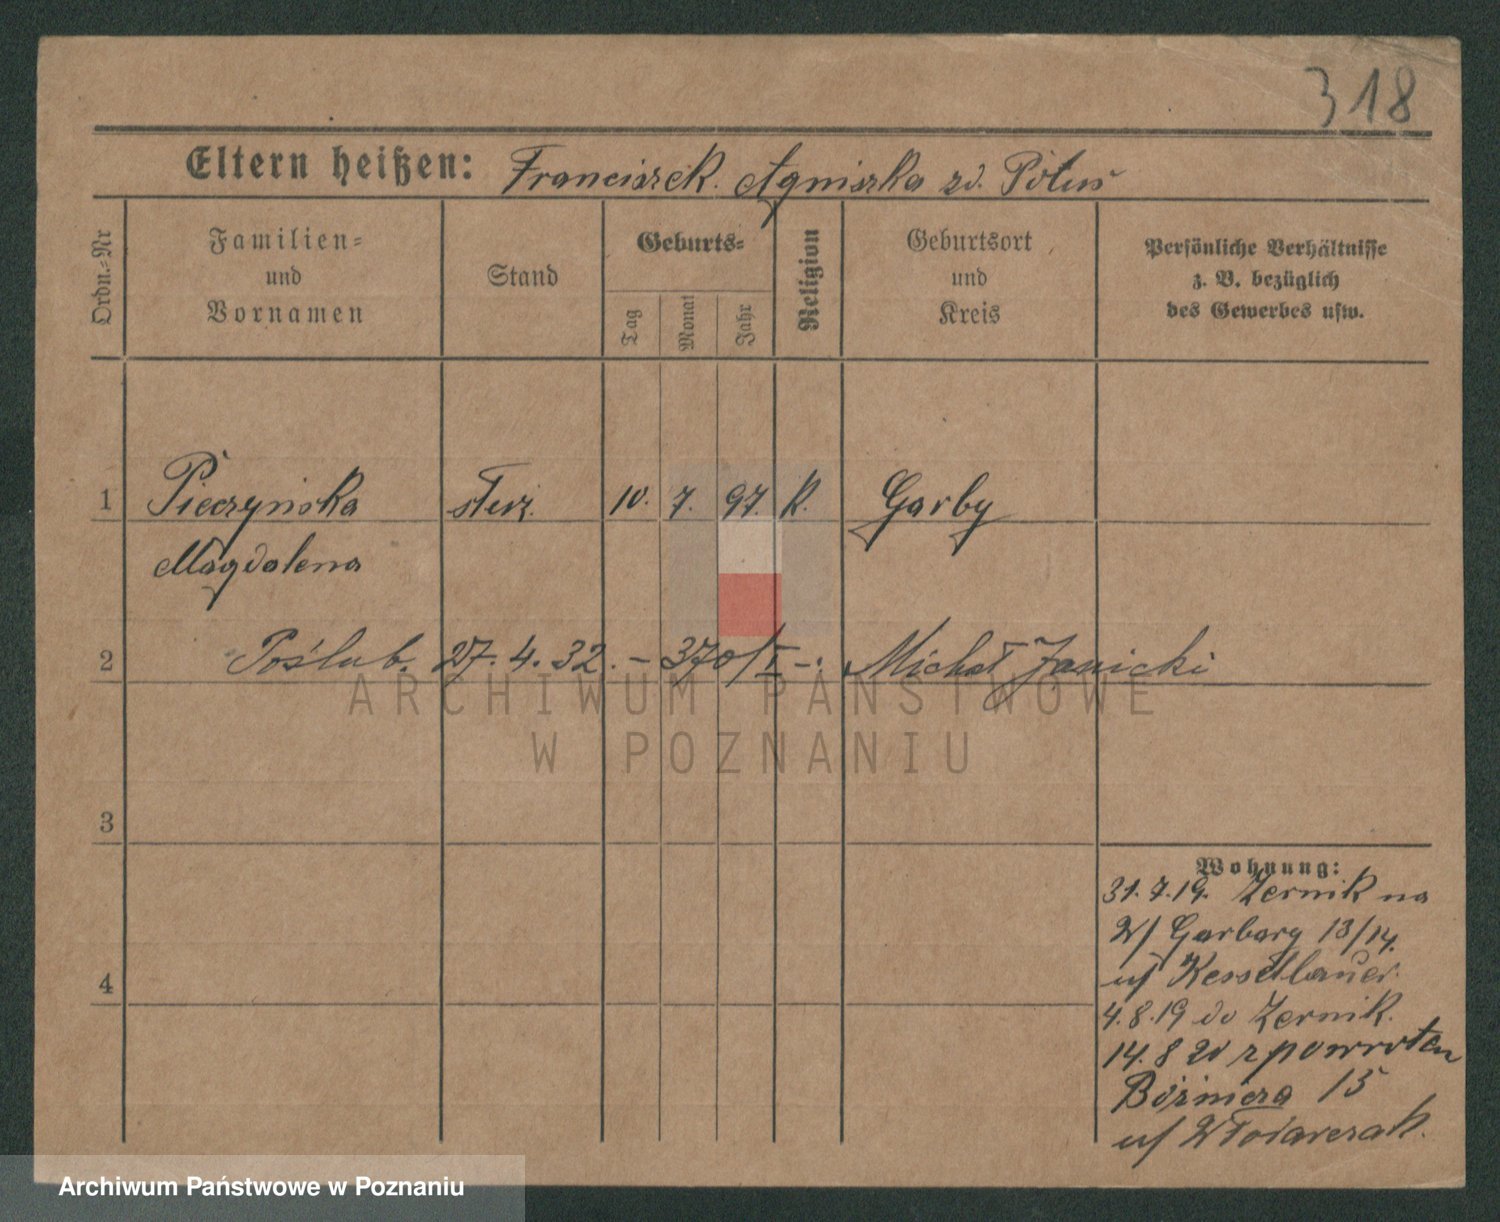 318
Eltern heißen: Franciszek. Agniszka zd. Polus
Ordn.-Nr
Familien-
und
Vornamen
Stand
Geburts-
Tag
Monat
Jahr
Religion
Geburtsort
und
Kreis
Persönliche Verhältnisse
z. B. bezüglich
des Gewerbes usw.
1 Pieczyńska 10. 7. 97. K. Garby
Magdalena
2 Poślub. 27. 4. 32. – 370/I –. Michał Janicki
3
4
Wohnung:
31.7.19. Zernik na
W/ Garbary 13/14.
u/ Kesselbauer.
4.8.19 do Zernik.
14.8 20 z powrotem
15
u/
ARCHIWUM PAŃSTWOWE
W POZNANIU
Archiwum Państwowe w Poznaniu